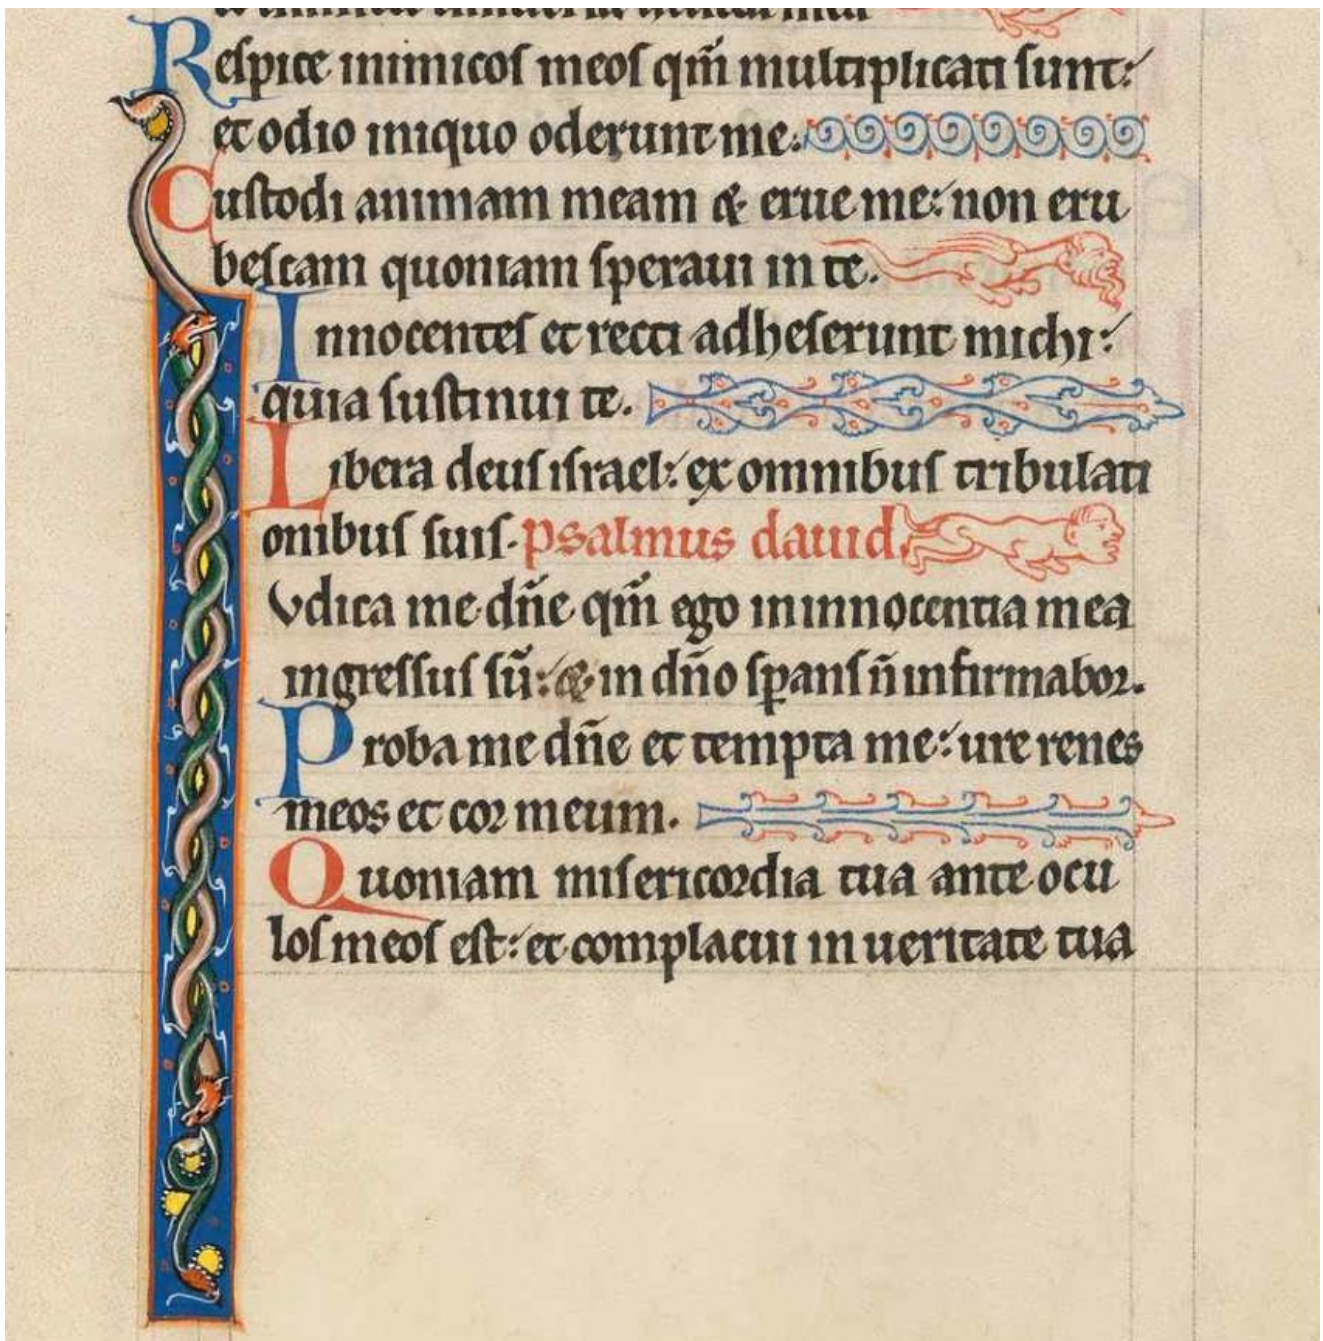 Respice inimicos meos qm̄ multiplicati sunt:
et odio iniquo oderunt me.
Custodi animam meam & erue me: non eru
bescam quoniam speraui in te.
Innocentes et recti adheserunt michi:
quia sustinui te.
Libera deus israel: ex omnibus tribulati
onibus suis. psalmus dauid.
Vdica me dn̄e qm̄ ego in innocentia mea
ingressus sū: & in dn̄o sꝑans n̄ infirmabor.
Proba me dn̄e et tempta me: ure renes
meos et cor meum.
Quoniam misericordia tua ante ocu
los meos est: et complacui in ueritate tua